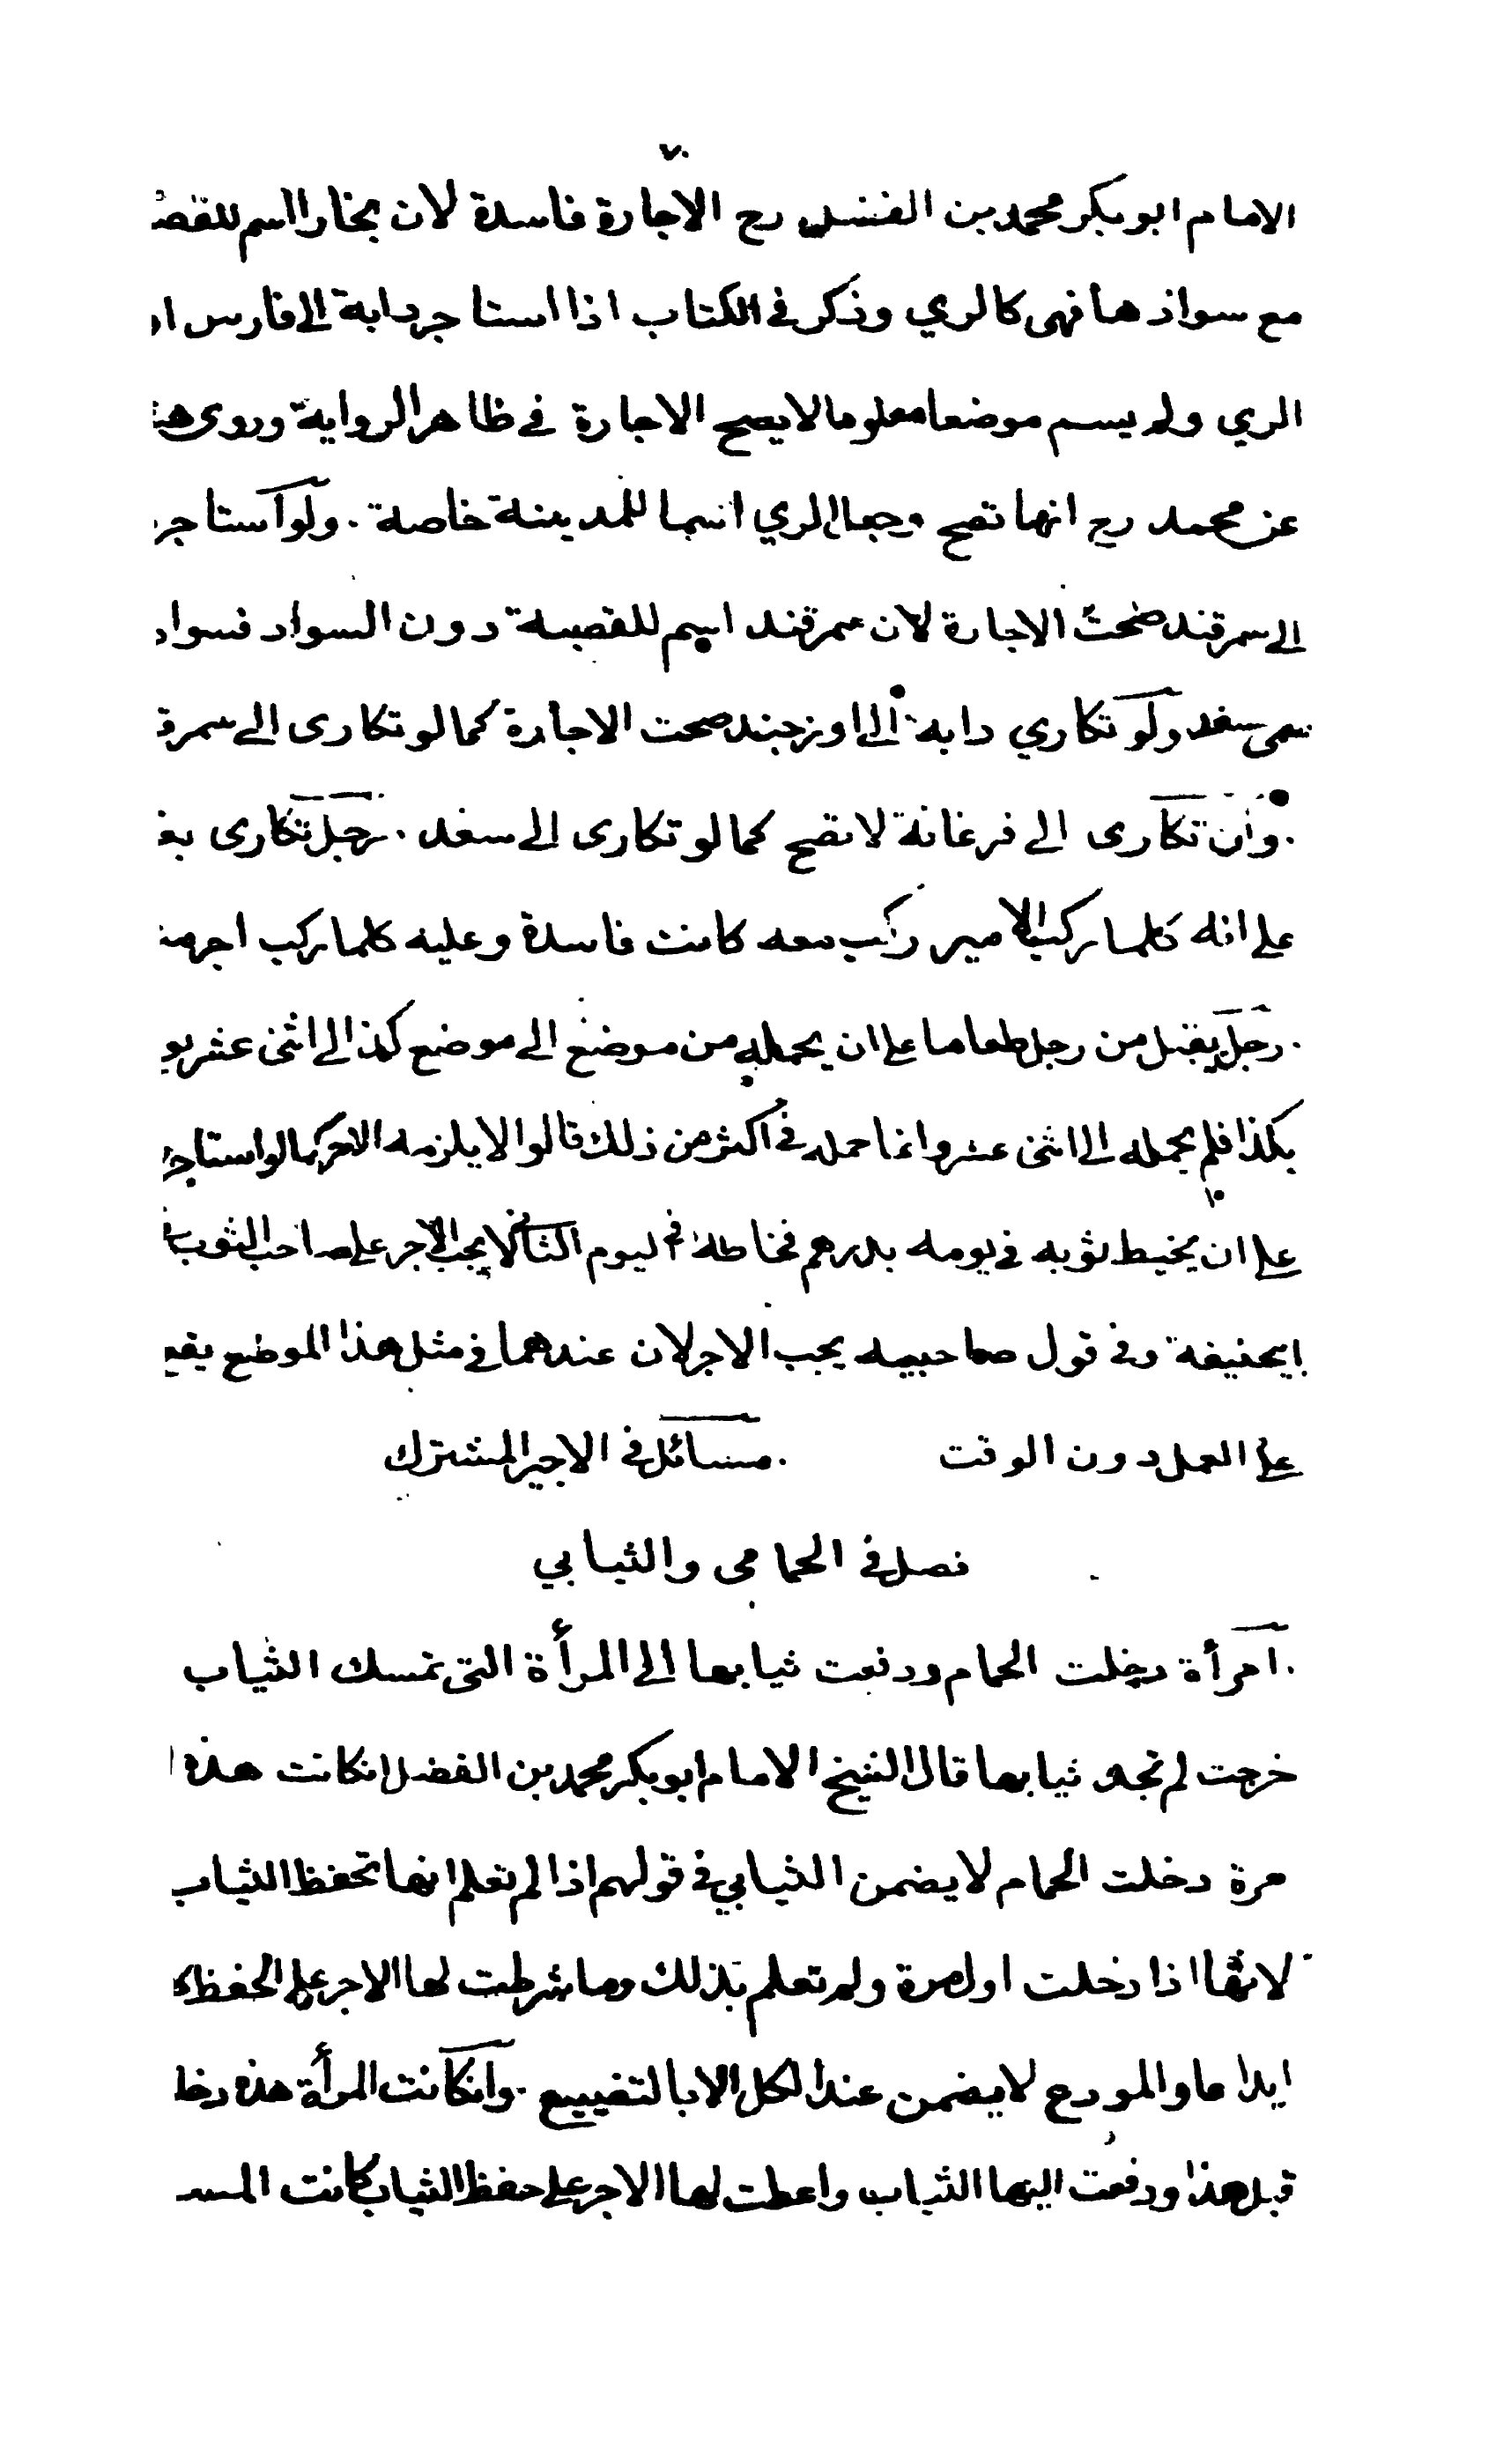 ٧٠
الامام ابو بكر محمد بن الفضل رح الاجارة فاسدة لان بخارا اسم للقصبة
مع سوادها فهى كالري وذكر في الكتاب اذا استاجر دابة الى فارس او
الري ولم يسم موضعا معلوما لا يصح الاجارة في ظاهر الرواية وروى
عن محمد رح انها تصح وجعل الري اسما للمدينة خاصة . ولو استاجر
الى سمرقند صحت الاجارة لان سمرقند اسم للقصبة دون السواد فسواد
سمى سغد ولو تكاري دابة الى اوزجند صحت الاجارة كما لو تكارى الى
. وان تكارى الى فرغانة لا تصح كما لو تكارى الى سغد . رجل تكارى
على انه كلما ركب الامير ركب معه كانت فاسدة وعليه كلما ركب اجر
. رجل يقبل من رجل طعاما على ان يحمله من موضع الى موضع كذا الى اثنى عشر
بكذا فلم يحمله الى اثنى عشر وانما حمله في اكثر من ذلك قالوا لا يلزمه الاجر كما لو استاجر
على ان يخيط ثوبه في يومه بدرهم فخاطه في اليوم الثاني لا يجب الاجر على صاحب الثوب
ابيحنيفة وفي قول صاحبيه يجب الاجر لان عندهما في مثل هذا الموضع يقع
على العمل دون الوقت . مسائل في الاجير المشترك
فصل في الحمامى والثيابي
. امرأة دخلت الحمام ودفعت ثيابها الى المرأة التى تمسك الثياب
خرجت لم تجد ثيابها قال الشيخ الامام ابو بكر محمد بن الفضل انكانت هذه
مرة دخلت الحمام لا يضمن الثيابي في قولهم اذا لم تعلم انها تحفظ الثياب
لانها اذا دخلت اول مرة ولم تعلم بذلك وما شرطت لها الاجر على الحفظ
ايداعا والمودع لا يضمن عند الكل الا بالتضييع . وانكانت المرأة هذه
قبل هذا ودفعت اليها الثياب واعطت لها الاجر على حفظ الثياب كانت